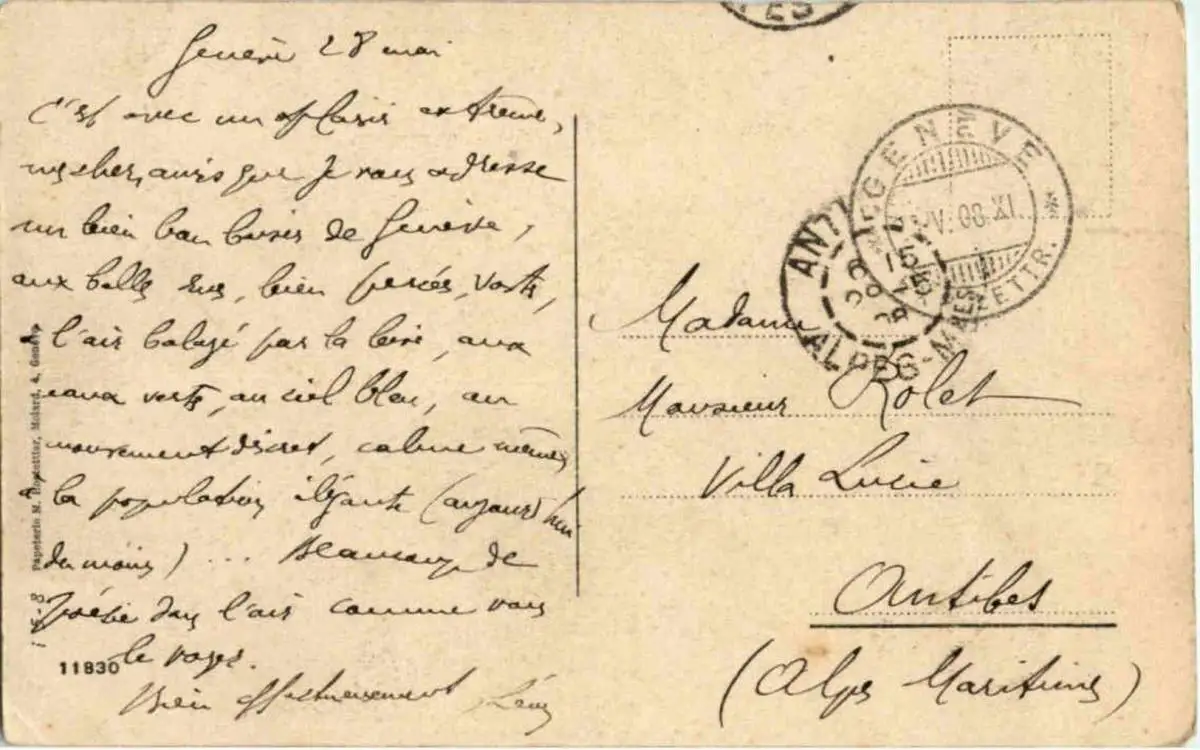 Genève 28 mai
C'est avec un plaisir extrême,
mes chers amis que je vous adresse
un bien bon baiser de Genève,
aux belles rues, bien percées, vertes,
l'air balayé par la bise, aux
eaux vertes, au ciel bleu, au
mouvement discret, calme même,
la population élégante (aujourd'hui
du moins) ... Beaucoup de
poésie dans l'air comme vous
le voyez.
Bien affectueusement
Madame
Monsieur Rolet
Villa Lucie
Antibes
(Alpes Maritimes)
GENEVE
08.XI
LETTR.
ANTI
ALPES-MRES
ES
11830
Papeterie